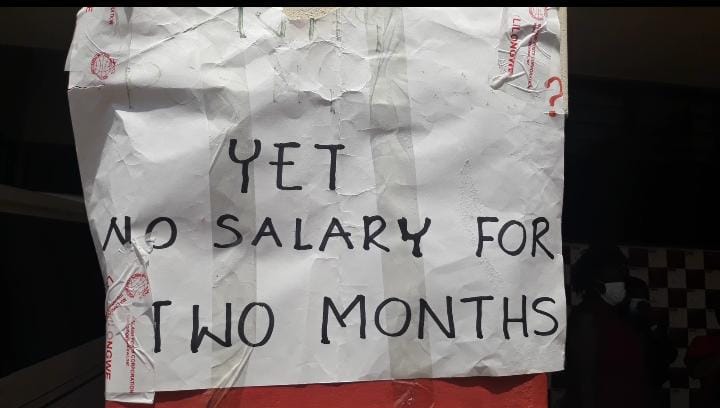 LILONGWE
YET
NO SALARY FOR
TWO MONTHS
LILONGWE